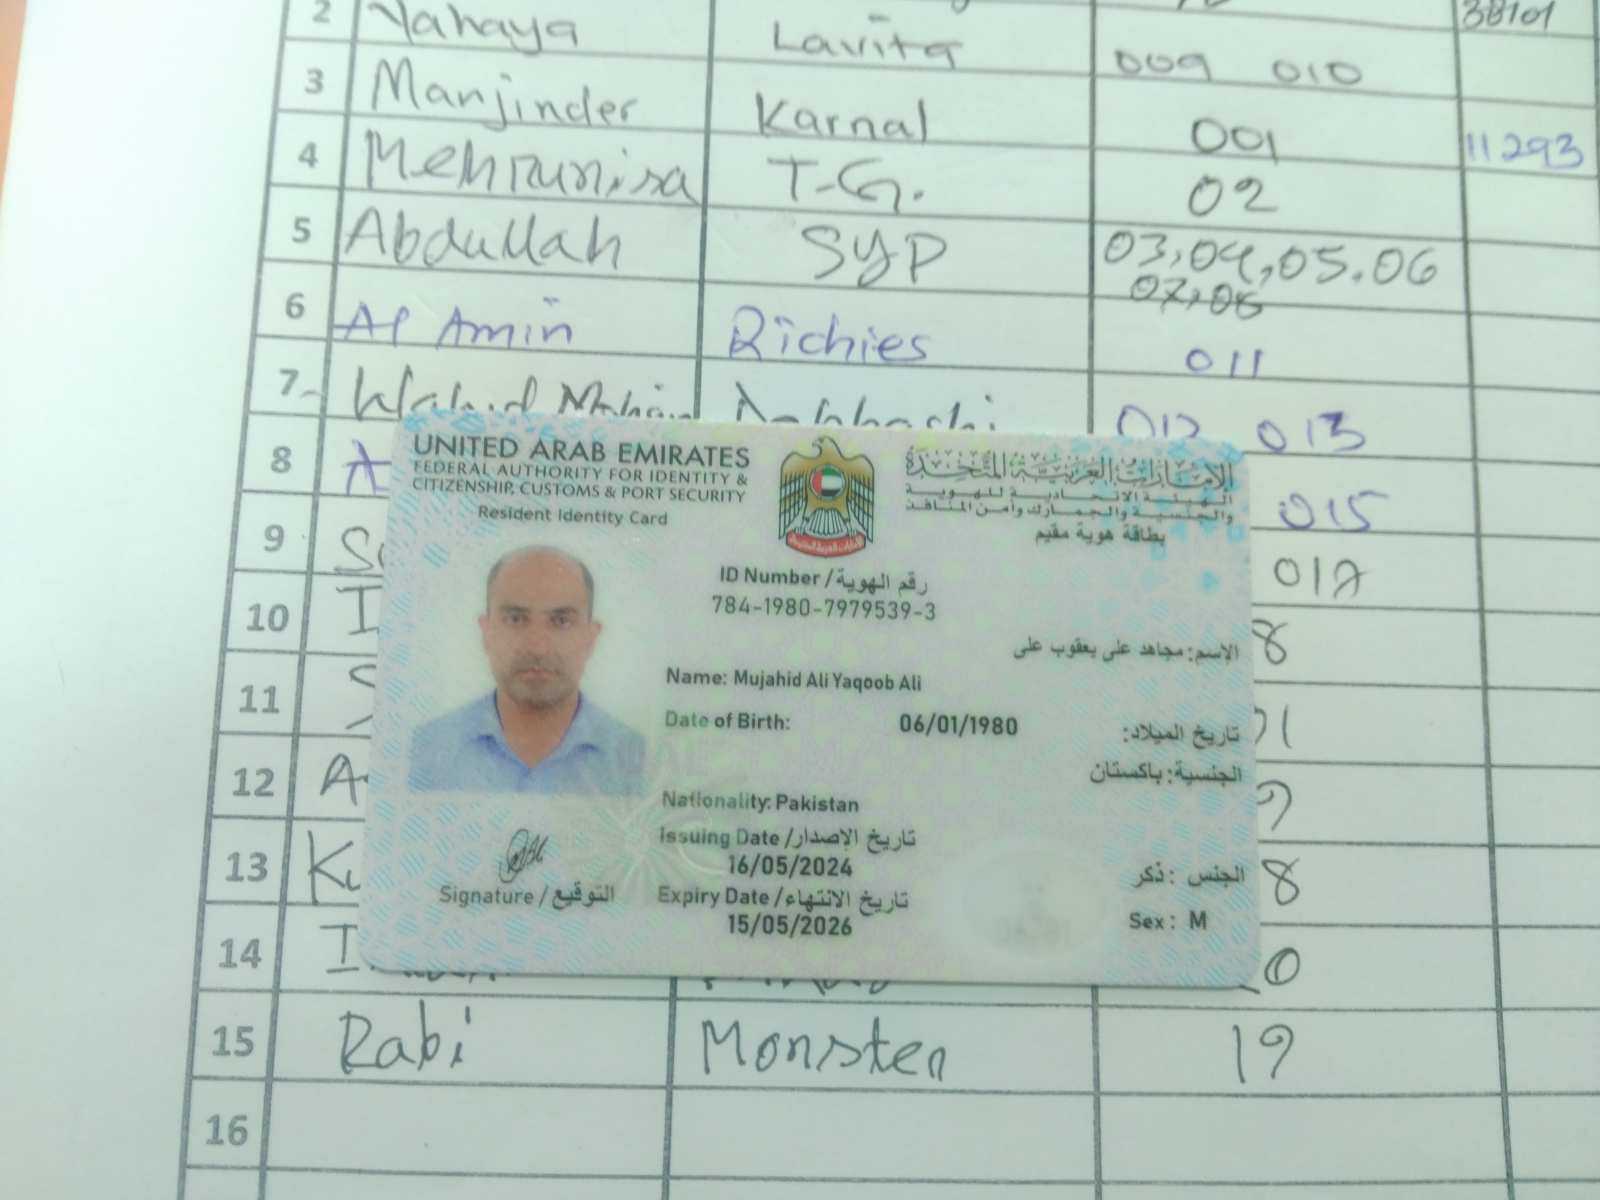 2 Yahaya Lavita 009 010 38101
3 Manjinder Karnal 001 11293
4 Mehrunisa T-G. 02
5 Abdullah SYP 03,04,05.06
07,08
6 Al Amin Richies 011
7 013
8 015
9
10
11
12
13
14
15 Rabi Monster 19
16
UNITED ARAB EMIRATES
FEDERAL AUTHORITY FOR IDENTITY &
CITIZENSHIP, CUSTOMS & PORT SECURITY
Resident Identity Card
الإمارات العربية المتحدة
الهيئة الاتحادية للهوية
والجنسية والجمارك وأمن المنافذ
بطاقة هوية مقيم
ID Number / رقم الهوية
784-1980-7979539-3
الاسم: مجاهد على يعقوب على
Name: Mujahid Ali Yaqoob Ali
Date of Birth: 06/01/1980 تاريخ الميلاد:
الجنسية: باكستان
Nationality: Pakistan
Issuing Date / تاريخ الإصدار
16/05/2024
Expiry Date / تاريخ الانتهاء
15/05/2026
الجنس : ذكر
Sex : M
Signature / التوقيع